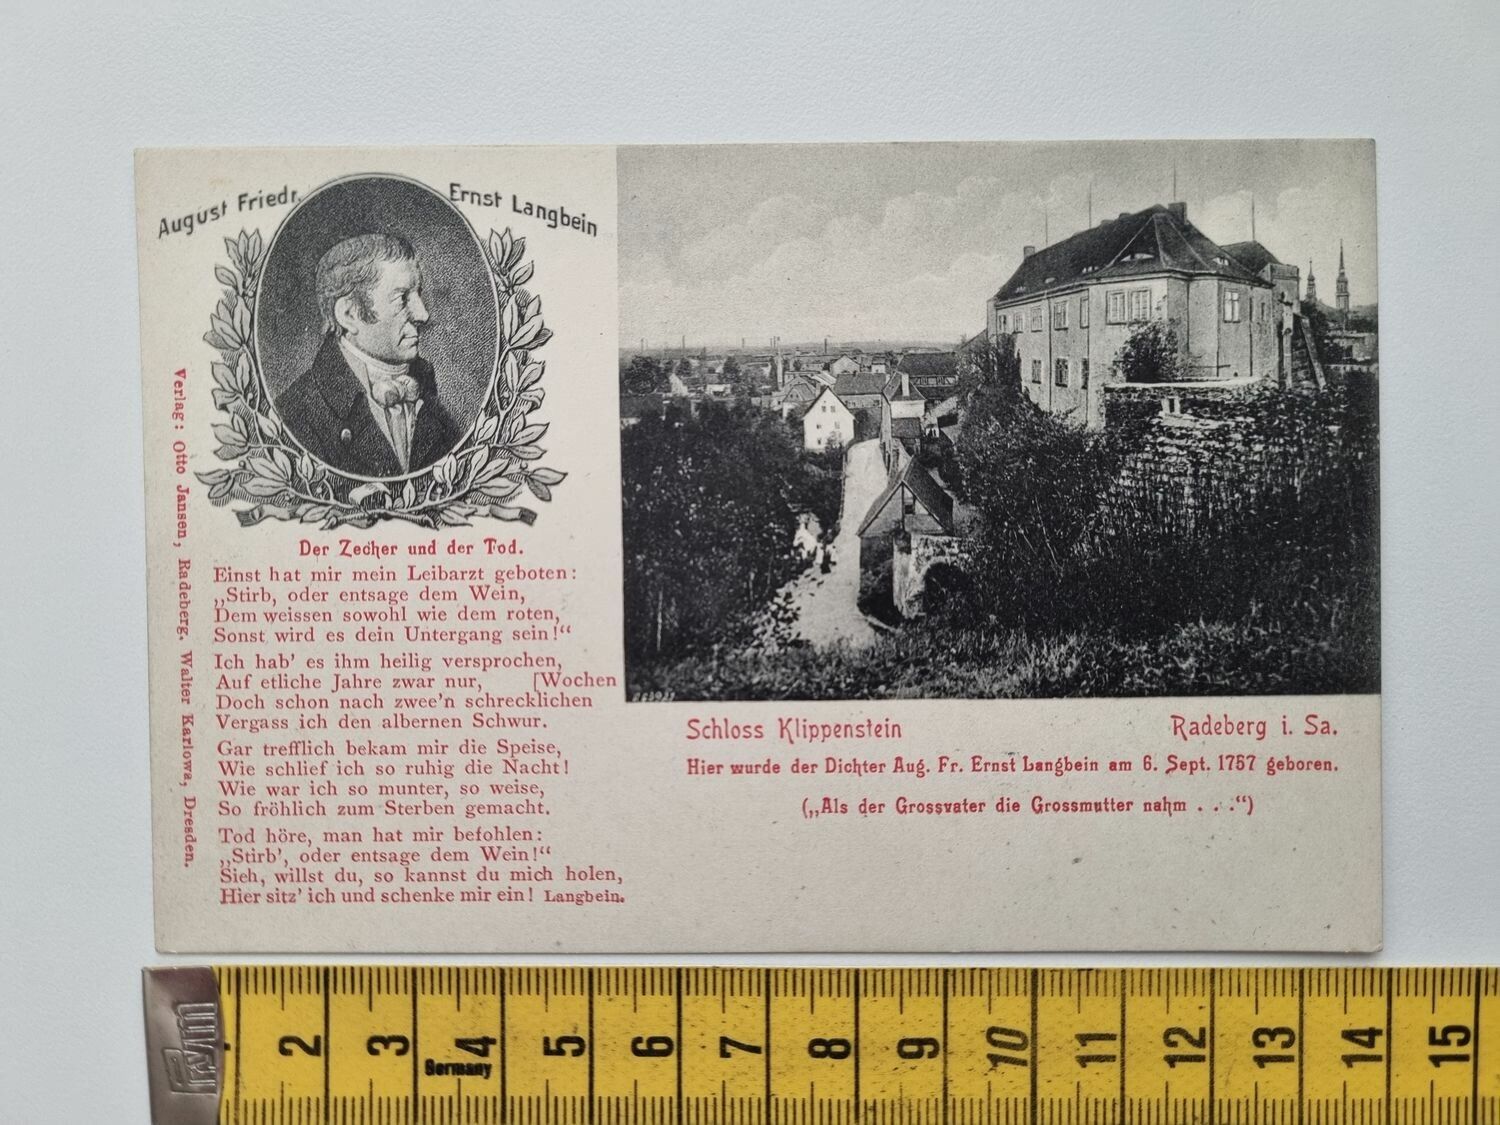 August Friedr. Ernst Langbein
Verlag: Otto Jansen, Radeberg. Walter Karlowa, Dresden.
Der Zecher und der Tod.
Einst hat mir mein Leibarzt geboten:
„Stirb, oder entsage dem Wein,
Dem weissen sowohl wie dem roten,
Sonst wird es dein Untergang sein!“
Ich hab' es ihm heilig versprochen,
Auf etliche Jahre zwar nur, [Wochen
Doch schon nach zwee'n schrecklichen
Vergass ich den albernen Schwur.
Gar trefflich bekam mir die Speise,
Wie schlief ich so ruhig die Nacht!
Wie war ich so munter, so weise,
So fröhlich zum Sterben gemacht.
Tod höre, man hat mir befohlen:
„Stirb', oder entsage dem Wein!“
Sieh, willst du, so kannst du mich holen,
Hier sitz' ich und schenke mir ein! Langbein.
Schloss Klippenstein Radeberg i. Sa.
Hier wurde der Dichter Aug. Fr. Ernst Langbein am 6. Sept. 1757 geboren.
(„Als der Grossvater die Grossmutter nahm . . .“)
2 3 4 5 6 7 8 9 10 11 12 13 14 15
Germany